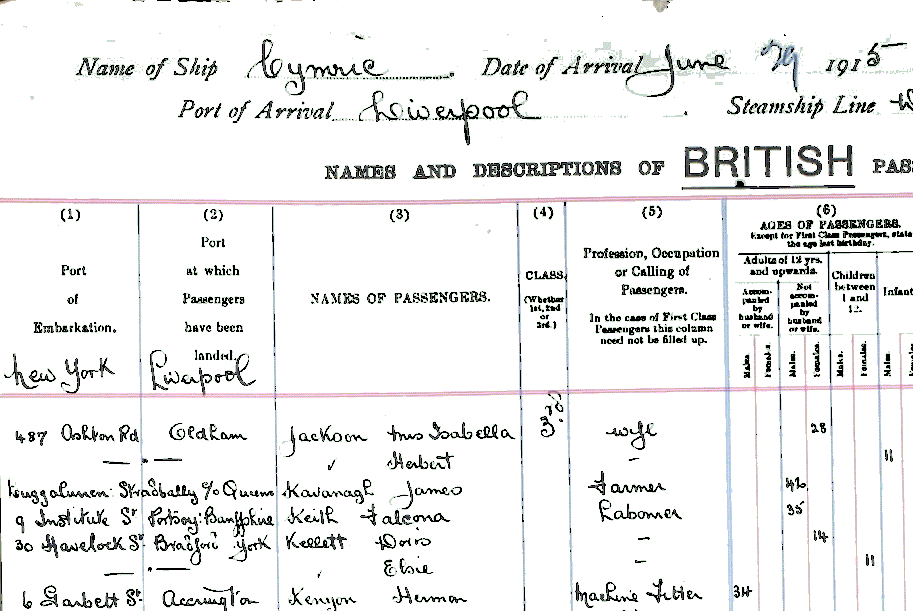 Name of Ship Cymric. Date of Arrival June 29 1915
Port of Arrival Liverpool. Steamship Line
NAMES AND DESCRIPTIONS OF BRITISH PASS
(1) (2) (3) (4) (5) (6)
Port of Embarkation.
Port at which Passengers have been landed.
NAMES OF PASSENGERS.
CLASS. (Whether 1st, 2nd or 3rd.)
Profession, Occupation or Calling of Passengers.
In the case of First Class Passengers this column need not be filled up.
AGES OF PASSENGERS.
Except for First Class Passengers, state the age last birthday.
Adults of 12 yrs. and upwards.
Accompanied by husband or wife.
Not accompanied by husband or wife.
Children between 1 and 12.
Infant
Males. Females. Males. Females. Males. Females. Males.
New York Liverpool
487 Ashton Rd Oldham Jackson Mrs Isabella 3rd wife 28
— " — " Herbert — 11
Stradbally c/o Queens Kavanagh James Farmer 42
9 Institute St Portsoy: Banffshire Keith Falcona Labourer 35
30 Havelock St Bradford York Kellett Doris — 14
— " — " Elsie — 11
6 Garbett St Accrington Kenyon Herman Machine Fitter 34